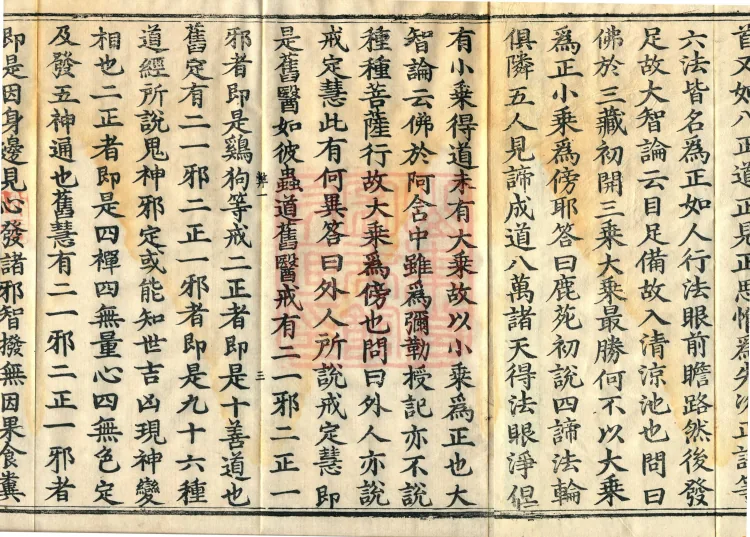 首又如八正道正見正思惟爲先次正語等
六法皆名爲正如人行法眼前瞻路然後發
足故大智論云目足備故入清涼池也問曰
佛於三藏初開三乘大乘最勝何不以大乘
爲正小乘爲傍耶答曰鹿苑初說四諦法輪
俱隣五人見諦成道八萬諸天得法眼淨但
有小乘得道未有大乘故以小乘爲正也大
智論云佛於阿含中雖爲彌勒授記亦不說
種種菩薩行故大乘爲傍也問曰外人亦說
戒定慧此有何異答曰外人所說戒定慧即
是舊醫如彼蟲道舊醫戒有二一邪二正一
三
邪者即是鷄狗等戒二正者即是十善道也
舊定有二一邪二正一邪者即是九十六種
道經所說鬼神邪定或能知世吉凶現神變
相也二正者即是四禪四無量心四無色定
及發五神通也舊慧有二一邪二正一邪者
即是因身邊見心發諸邪智撥無因果食糞